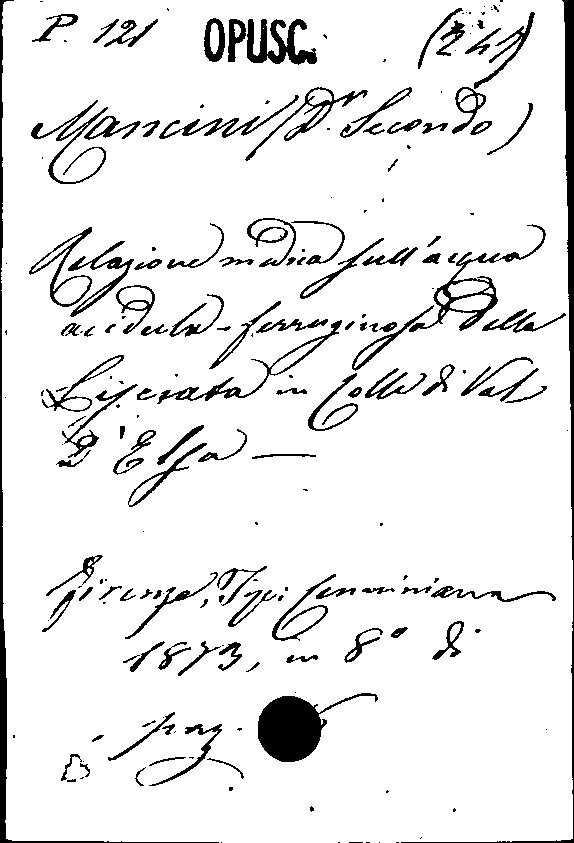 P. 121 OPUSC. (241)
Mancini (Dr. Secondo)
Relazione medica sull'acqua
acidula-ferruginosa della
in Colle di Val
D'Elsa —
Firenze, Tip: Cenniniana
1873, in 8º di
pag.